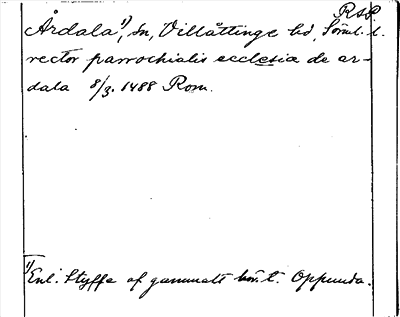 RAP.
Årdala¹⁾, sn, Villåttinge hd, Söml. l.
rector parrochialis ecclesiæ de ar-
dala 8/3. 1488 Rom.
¹⁾Enl. Styffe af gammalt hör. t. Oppunda.